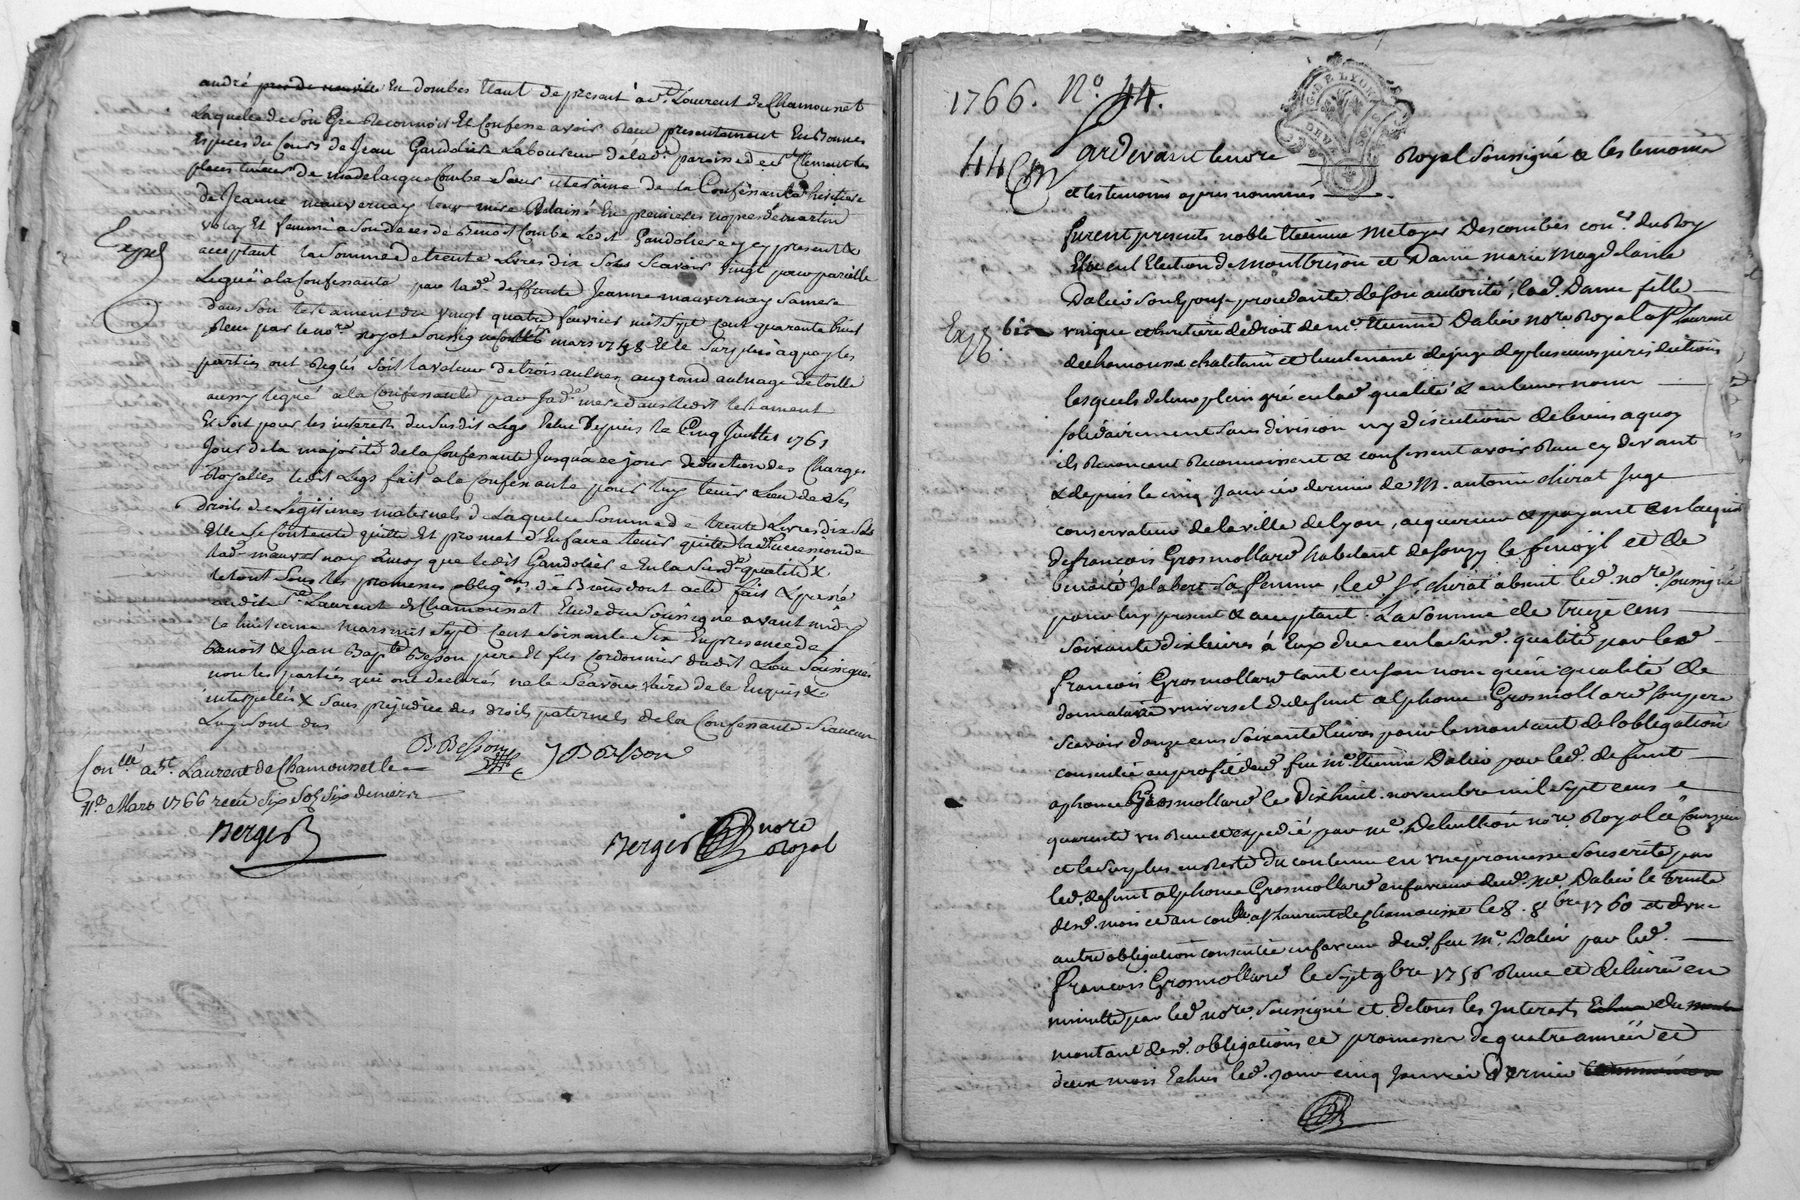 andré près de neuville En dombes Etant de present a St. Laurent de Chamousset
Laquelle de Son Gré Reconnois Et Confesse avoir Receu presentement En Bonnes
Especes du Cours de Jean Gaudolier Laboureur de lad. paroisse de St. Clement les
places de madelaigne Combe Soeur uterine de la Confessante heritiere
de Jeanne mauvernay leur mere Relaissé En premieres nopces de martin
volay Et femme a Son deces de Benoit Combe Ledit Gaudolier y cy present &
acceptant la Somme de trente Livres dix Sols Scavoir vingt pour pareille
Leguë a la Confessante par lad. deffunte Jeanne mauvernay Sa mere
dans Son testament du vingt quatre fevrier mil Sept Cent quarante huit
Receu par le no.re royal Soussigné mars 1748 Et le Surplus a quoy les
parties ont Reglés Soit la valeur de trois aulnes au grand aulnage de toille
aussy legué a la Confessante par sad. mere dans ledit testament
Et Soit pour les interests du Susdit Legs Echu Depuis le Cinq Juillet 1761
Jour de la majorité de la Confessante Jusqu'a ce jour deduction des Charges
Royalles ledit Legs fait a la Confessante pour luy tenir Lieu de Ses
Droits de Legitimes maternels de Laquelle Somme de trente Livres dix Sols
Elle Se Contente quitte Et promet d'En faire tenir quitte la Succession de
lad. mauvernay Ainsy que ledit Gaudolier En la Susd. qualité &
le tout Sous les promesses oblig.ons de Biens dont acte fait & passé
audit St. Laurent de Chamousset Etude du Soussigné avant midy
le huitieme mars mil Sept Cent Soixante Six En presence de
Benoit & Jean Bap.te Besson pere Et fils Cordonnier dudit Lieu Soussignés
non les parties qui ont declarés ne le Scavoir faire de le Enquis &
interpellés & Sans prejudice des droits paternels de la Confessante Si aucun
Luy Sont dus
BBesson JBBesson
Con.llé a St. Laurent de Chamousset le
11e. Mars 1766 receu Six Sols Six deniers
Berger
Berger no.re Royal
Exped
1766. No. 44.
G. DE LYON
44
Pardevant le no.re Royal Soussigné & les temoins
et les temoins apres nommés
furent presents noble Etienne Metayer Descombes con.er du Roy
Elu en l'Election de Montbrison et Dame marie Magdelaine
Dalier son Epouse procedante de son autorité, lad. Dame fille
unique et heritiere de droit de me. Etienne Dalier no.re Royal a St. Laurent
de chamousset chatelain et lieutenant de juge de plusieurs jurisdictions
Exp. bis
lesquels de leur plein gré en lad. qualité & en leurs noms
solidairement sans division ny discution de biens a quoy
ils Renoncent Reconnoissent & confessent avoir Receu cy devant
& depuis le cinq Janvier dernier de M. antoine chirat Juge
conservateur de la ville de Lyon, acquereur & payant En l'acquit
de francois Grosmollard habitant de Souzy le fenoyl et de
benoite Jalabert Sa femme, led. Sr. chirat absent led. no.re Soussigné
pour luy present & acceptant. La Somme de treize cens
soixante dix livres à Eux due en la Susd. qualité par led.
francois Grosmollard tant en son nom qu'en qualité de
donnataire universel de defunt alphonce Grosmollard son pere
Scavoir douze cens soixante livres pour le montant de l'obligation
consentie au profit dud. feu me. Etienne Dalier par led. defunt
alphonce Grosmollard le Dix huit novembre mil Sept cens
quarente un Receu et expedié par me. no.re Royal
et le Surplus en Reste du contenu en une promesse Souscrite par
led. defunt alphonce Grosmollard en faveur dud. me. Dalier le trente
desd. mois et an con.llé a St. Laurent de Chamousset le 8. 8bre 1760 et d'une
autre obligation consentie en faveur dud. feu me. Dalier par led.
francois Grosmollard le Sept 9bre 1756 Receue et delivrée en
minutte par led. no.re Soussigné et de tous les Interests
montant desd. obligations et promesses de quatre années et
deux mois Echus led. jour cinq Janvier Dernier